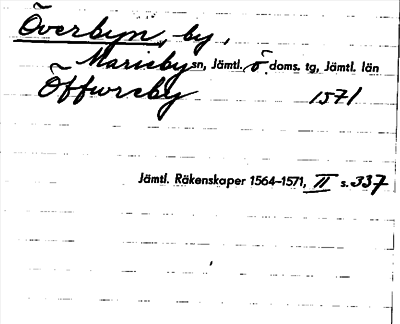 Överbyn, by,
Marieby sn, Jämtl. ö. doms. tg, Jämtl. län
Öffwreby 1571
Jämtl. Räkenskaper 1564–1571, II s. 337